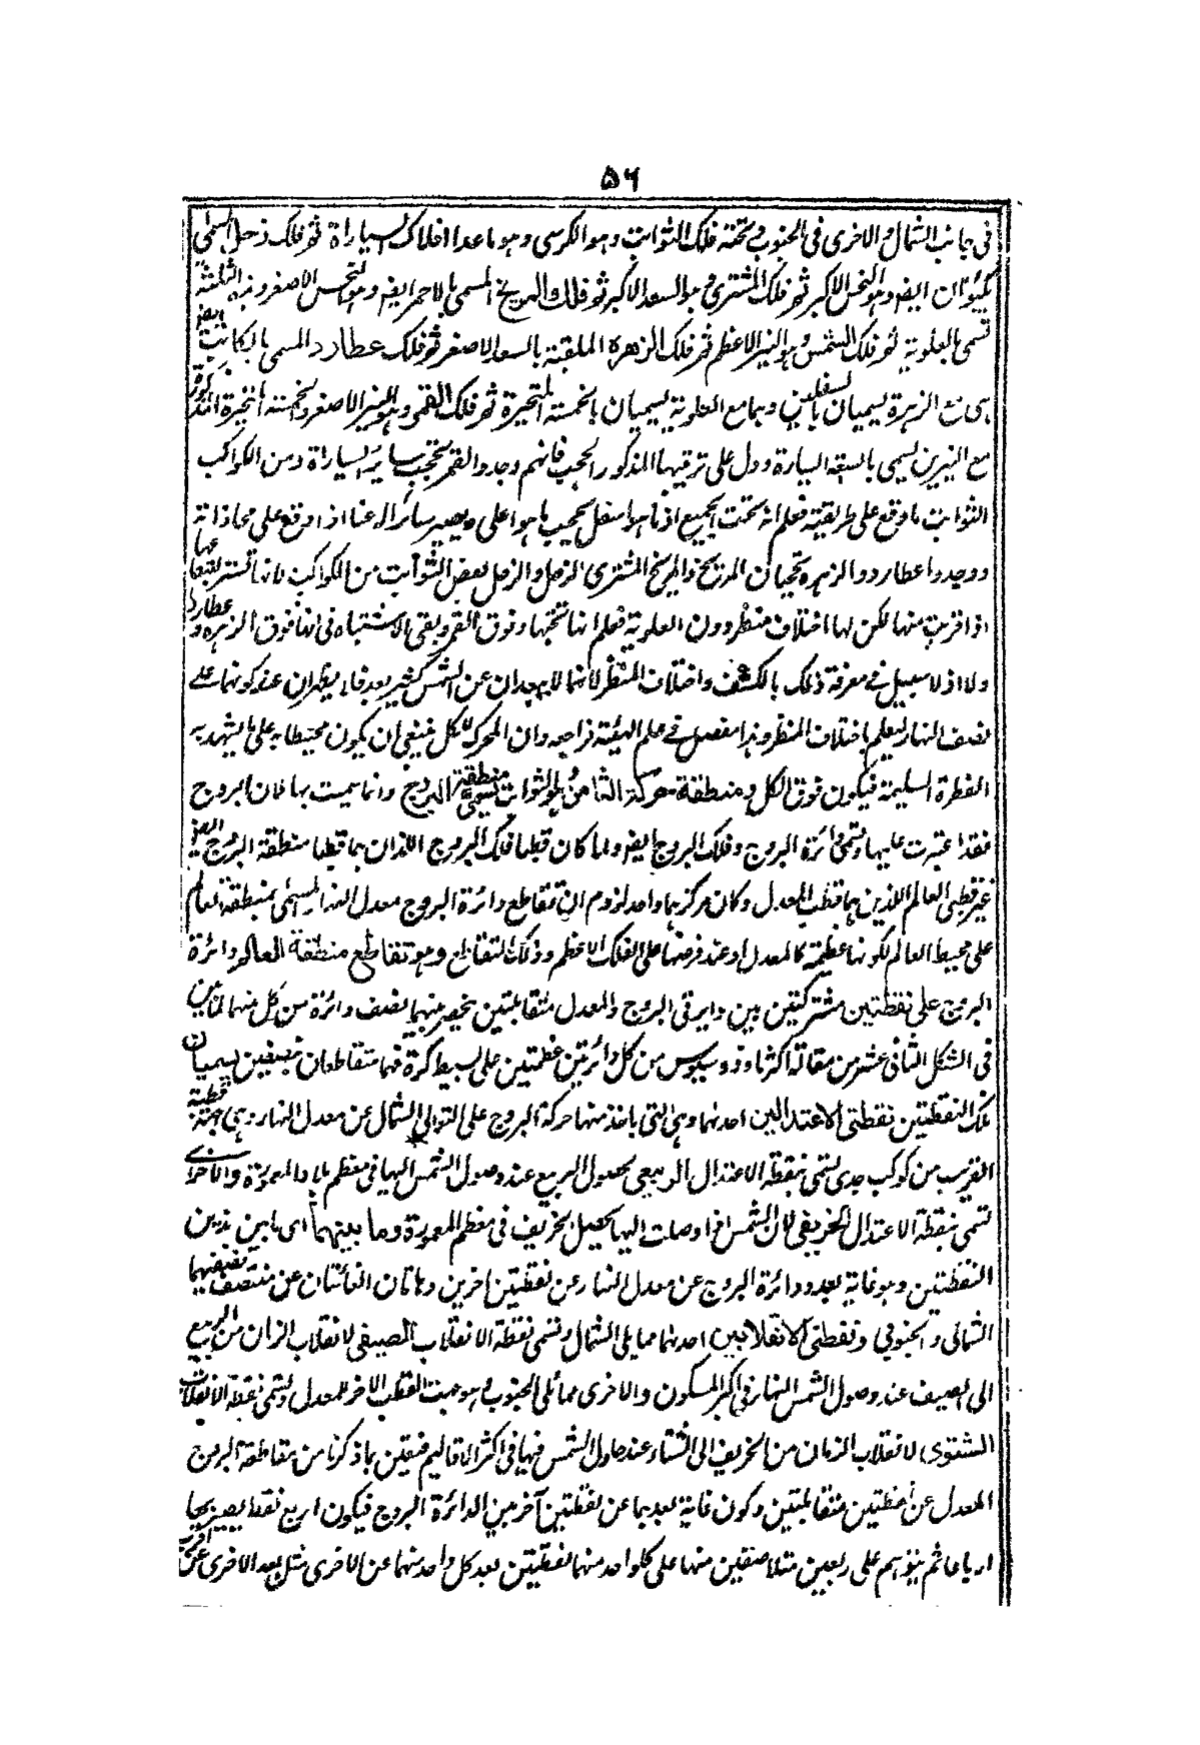 ۵۶
فى جانب الشمال والاخرى فى الجنوب وتحته فلك الثوابت وهو الكرسى وهو ماعدا افلاك السيارة ثم فلك زحل المسمى
بكيوان ايضا وهو النحس الاكبر ثم فلك المشترى وهو السعد الاكبر ثم فلك المريخ المسمى بالاحمر ايضا وهو النحس الاصغر وهذه الثلثة
تسمى بالعلوية ثم فلك الشمس وهو النير الاعظم ثم فلك الزهرة الملقبة بالسعد الاصغر ثم فلك عطارد المسمى بالكاتب ايضا
هى مع الزهرة يسميان بالسفليين وهما مع العلوية يسميان بالخمسة المتحيرة ثم فلك القمر وهو النير الاصغر والخمسة المتحيرة المذكورة
مع النيرين يسمى بالسبعة السيارة ودل على ترتيبها المذكور الحجب فانهم وجدوا القمر يحجب سائر السيارة ومن الكواكب
الثوابت ما وقع على طريقته فعلم انه تحت الجميع اذ ما هو اسفل يحجب ما هو اعلى ويصير ساترا له عنا اذا وقع على محاذاته
ووجدوا عطارد والزهرة يحجبان المريخ والمريخ المشترى الزحل والزحل بعض الثوابت من الكواكب لانها تستر بعضها عنا
اذا قربت منها لكن لها اختلاف منظر دون العلوية فعلم انها تحتها وفوق القمر وبقى الاشتباه فى انها فوق الزهرة وعطارد
ولا اذ لا سبيل فى معرفة ذلك بالكشف واختلاف المنظر لانهما لا يبعدان عن الشمس كثير بعد فلا يظهران عند كونهما على
نصف النهار ليعلم باختلاف المنظر وهذا مفصل فى علم الهيئة فراجعه وان المحرك للكل ينبغى ان يكون محيطا به على ما يشهد به
الفطرة السليمة فيكون فوق الكل ومنطقة حركة الثامن هو الثوابت تسمى منطقة البروج وانما سميت بها لان البروج
فقد اعتبرت عليها وتسمى دائرة البروج وفلك البروج ايضا ولما كان قطبا فلك البروج اللذان هما قطبا منطقة البروج ايضا
غير قطبى العالم اللذين هما قطبا المعدل وكان مركزهما واحد لزم ان تقاطع دائرة البروج معدل النهار المسمى بمنطقة العالم
على محيط العالم لكونها عظيمة كالمعدل او عند فرضها على الفلك الاعظم وذلك التقاطع وهو تقاطع منطقة العالم ودائرة
البروج على نقطتين مشتركتين بين دايرتى البروج والمعدل متقابلتين ينحصر بينهما نصف دائرة من كل منهما لما بين
فى الشكل الثانى عشر من مقالة اكثر ثاوذوسيوس من كل دائرتين عظمتين على بسيط كرة فهما متقاطعان بنصفين يسميان
تلك النقطتين نقطتى الاعتدالين احدهما وهى التى ياخذ منها حركة البروج على التوالى الشمال عن معدل النهار وهى جهة قطبه
القريب من كوكب جدى يسمى بنقطة الاعتدال الربيعى لحصول الربيع عند وصول الشمس اليها فى معظم بلاد المعمورة والاخرى
تسمى بنقطة الاعتدال الخريفى لان الشمس اذا وصلت اليها يحصل الخريف فى معظم المعمورة وما بينهما اى ما بين هذين
النقطتين وهو غاية بعد دائرة البروج عن معدل النهار عن نقطتين اخرين وهاتان الغايتان عن منتصف نصفيهما
الشمالى والجنوبى ونقطتى الانقلابين احدهما مما يلى الشمال وتسمى نقطة الانقلاب الصيفى لانقلاب الزمان من الربيع
الى الصيف عند وصول الشمس النهار فى اكثر المسكون والاخرى مما يلى الجنوب وهو جهة القطب الاخر للمعدل وتسمى نقطة الانقلاب
الشتوى لانقلاب الزمان من الخريف الى الشتاء عند حلول الشمس فيها فى اكثر الاقاليم فتعين بما ذكرنا من مقاطعة البروج
المعدل عن نقطتين متقابلتين وكون غاية بعدهما عن نقطتين آخرين الدائرة البروج فيكون اربع نقط يصير بها
ارباعا ثم يتوهم على ربعين متلاصقين منها على كل واحد منهما نقطتين بعد كل واحد منهما عن الاخرى مثل بعد الاخرى عن